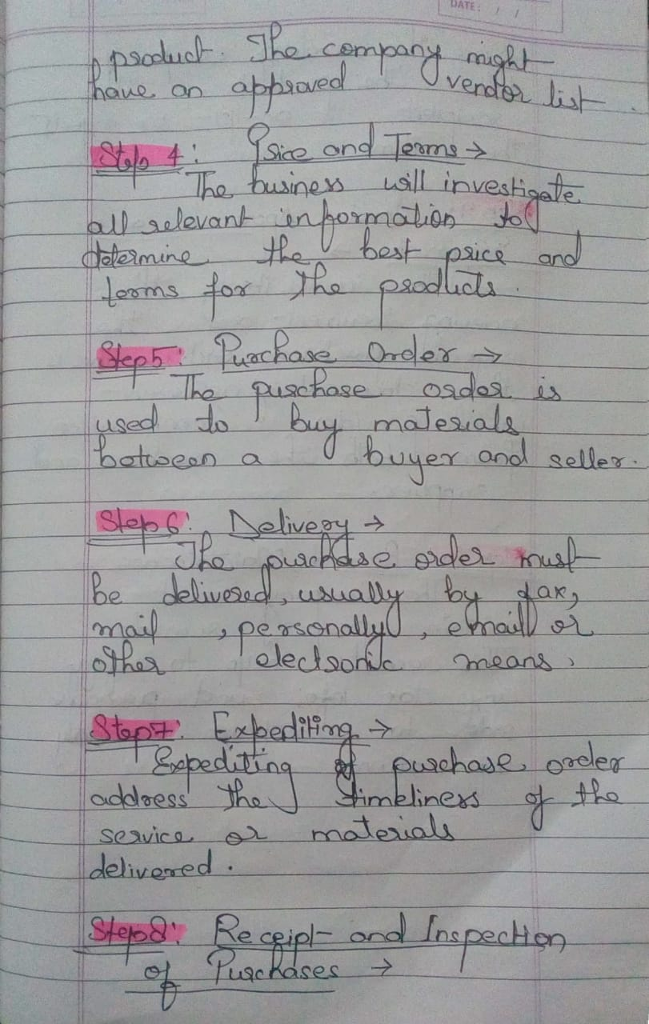 DATE: / /
product. The company might
have an approved vendor list.
Step 4: Price and Terms →
The business will investigate
all relevant information to
determine the best price and
terms for the products.
Step5: Purchase Order →
The purchase order is
used to buy materials
between a buyer and seller.
Step6: Delivery →
The purchase order must
be delivered, usually by fax,
mail, personally, email or
other electronic means.
Step7: Expediting →
Expediting of purchase order
address the timeliness of the
service or materials
delivered.
Step8: Receipt and Inspection
of Purchases →